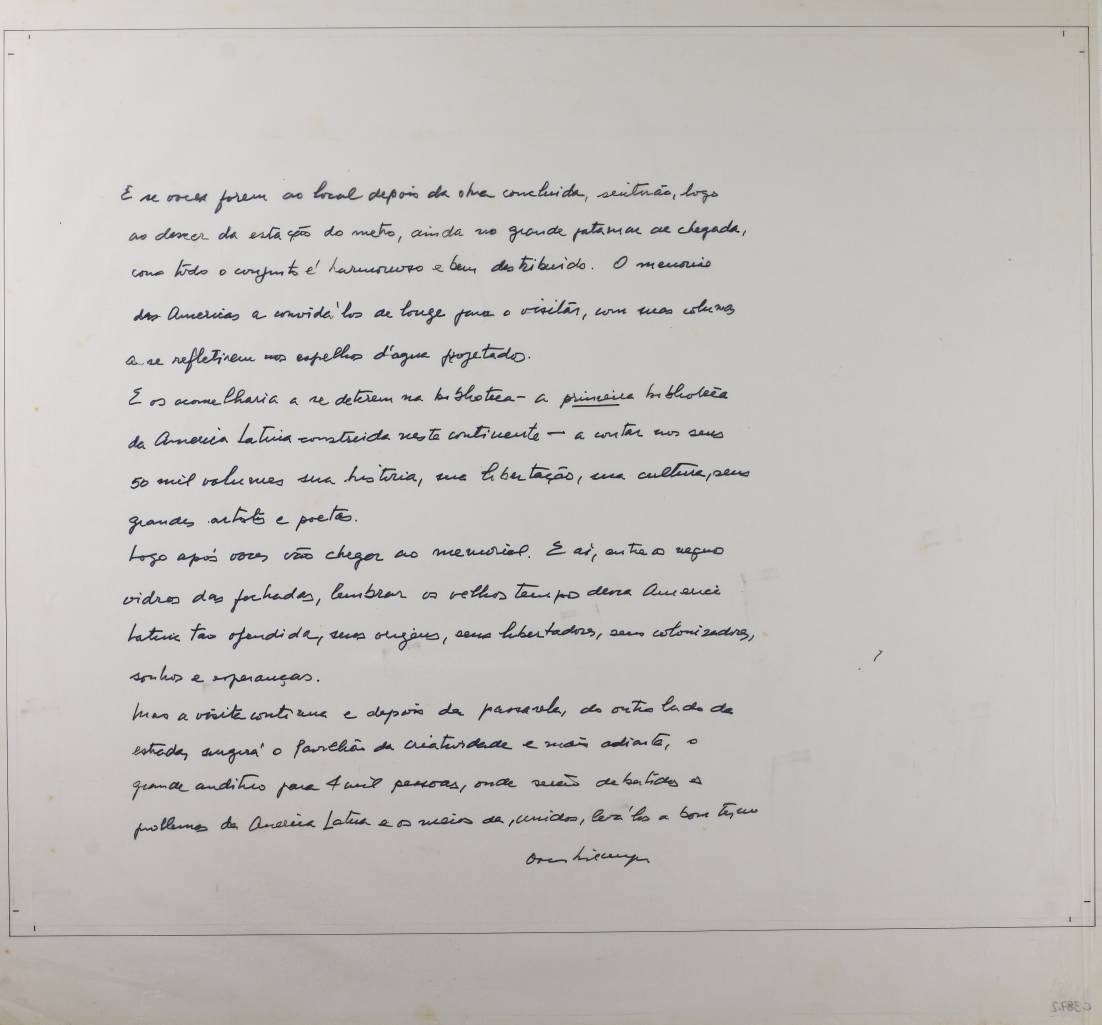 E se voces forem ao local depois da obra concluida, sentirão, logo
ao descer da estação do metro, ainda no grande patamar de chegada,
como todo o conjunto é harmonioso e bem distribuido. O memorial
das Americas a convidá-los de longe para o visitar, com suas colunas
a se refletirem nos espelhos d'agua projetados.
E os aconselharia a se deterem na biblioteca - a primeira biblioteca
da America Latina construida neste continente - a contar nos seus
50 mil volumes sua historia, sua libertação, sua cultura, seus
grandes artistas e poetas.
Logo após voces vão chegar ao memorial. E ai, entre o negro
vidros das fachadas, lembrar os velhos tempo dessa America
Latina tao ofendida, suas origens, seus libertadores, seus colonizadores,
sonhos e esperanças.
Mas a visita continua e depois da passarela, do outro lado da
estrada, surgirá o Pavilhão da criatividade e mais adiante, o
grande auditrio para 4 mil pessoas, onde serão debatidos os
problemas da America Latina e os meios de, unidos, levá-los a bom termo
Oscar Niemeyer